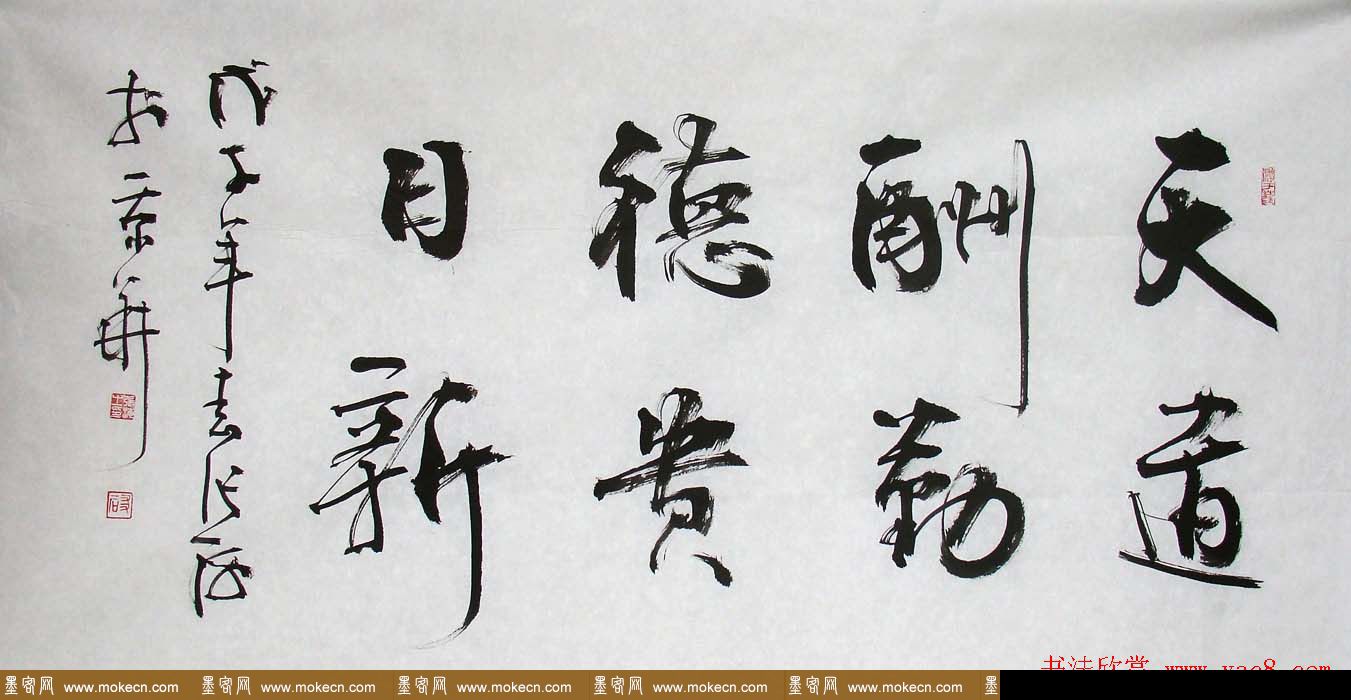 天道
酬勤
德贵
日新
戊子年
於京华
墨客网 www.mokecn.com 墨客网 www.mokecn.com 墨客网 www.mokecn.com 墨客网 www.mokecn.com 墨客网 www.mokecn.com
书法欣赏 www.yac8.com